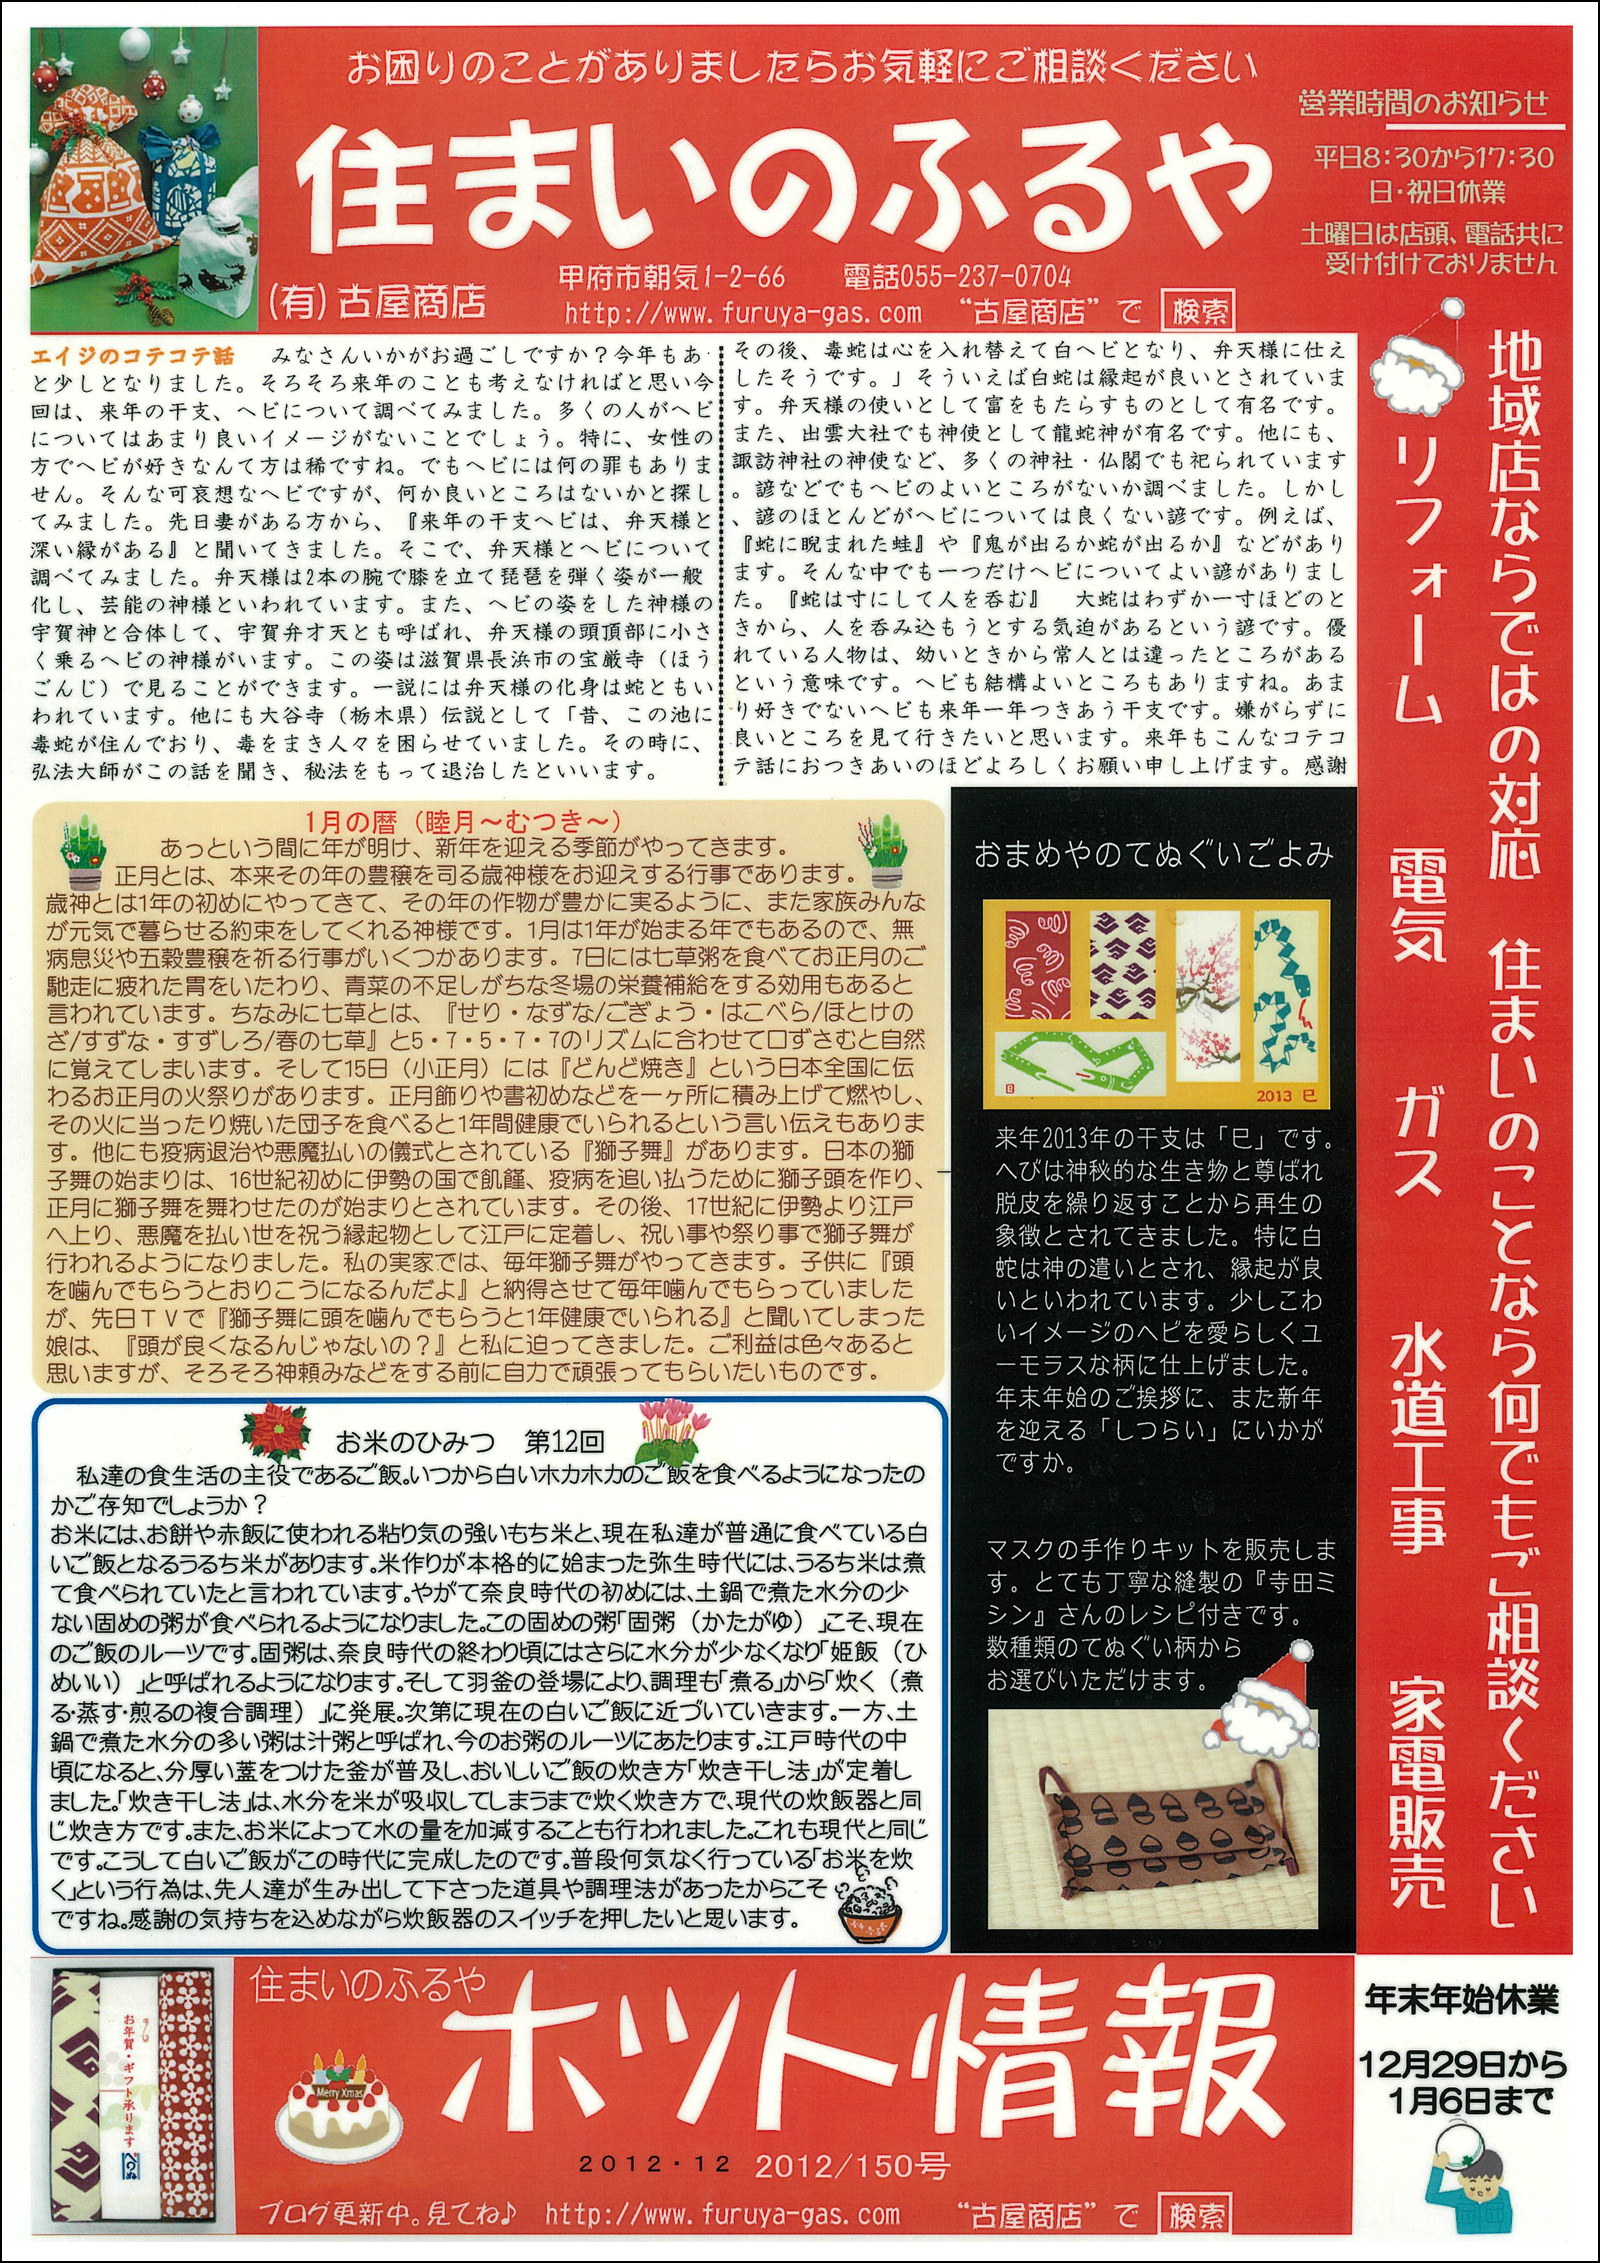 お困りのことがありましたらお気軽にご相談ください
住まいのふるや
(有)古屋商店
甲府市朝気1-2-66　電話055-237-0704
http://www.furuya-gas.com　“古屋商店”で 検索
営業時間のお知らせ
平日8:30から17:30
日・祝日休業
土曜日は店頭、電話共に
受け付けておりません
エイジのコテコテ話　みなさんいかがお過ごしですか？今年もあ
と少しとなりました。そろそろ来年のことも考えなければと思い今
回は、来年の干支、ヘビについて調べてみました。多くの人がヘビ
についてはあまり良いイメージがないことでしょう。特に、女性の
方でヘビが好きなんて方は稀ですね。でもヘビには何の罪もありま
せん。そんな可哀想なヘビですが、何か良いところはないかと探し
てみました。先日妻がある方から、『来年の干支ヘビは、弁天様と
深い縁がある』と聞いてきました。そこで、弁天様とヘビについて
調べてみました。弁天様は2本の腕で膝を立て琵琶を弾く姿が一般
化し、芸能の神様といわれています。また、ヘビの姿をした神様の
宇賀神と合体して、宇賀弁才天とも呼ばれ、弁天様の頭頂部に小さ
く乗るヘビの神様がいます。この姿は滋賀県長浜市の宝厳寺（ほう
ごんじ）で見ることができます。一説には弁天様の化身は蛇ともい
われています。他にも大谷寺（栃木県）伝説として「昔、この池に
毒蛇が住んでおり、毒をまき人々を困らせていました。その時に、
弘法大師がこの話を聞き、秘法をもって退治したといいます。
その後、毒蛇は心を入れ替えて白ヘビとなり、弁天様に仕え
したそうです。」そういえば白蛇は縁起が良いとされていま
す。弁天様の使いとして富をもたらすものとして有名です。
また、出雲大社でも神使として龍蛇神が有名です。他にも、
諏訪神社の神使など、多くの神社・仏閣でも祀られています
。諺などでもヘビのよいところがないか調べました。しかし
、諺のほとんどがヘビについては良くない諺です。例えば、
『蛇に睨まれた蛙』や『鬼が出るか蛇が出るか』などがあり
ます。そんな中でも一つだけヘビについてよい諺がありまし
た。『蛇は寸にして人を呑む』　大蛇はわずか一寸ほどのと
きから、人を呑み込もうとする気迫があるという諺です。優
れている人物は、幼いときから常人とは違ったところがある
という意味です。ヘビも結構よいところもありますね。あま
り好きでないヘビも来年一年つきあう干支です。嫌がらずに
良いところを見て行きたいと思います。来年もこんなコテコ
テ話におつきあいのほどよろしくお願い申し上げます。感謝
地域店ならではの対応　住まいのことなら何でもご相談ください
リフォーム　電気　ガス　水道工事　家電販売
1月の暦（睦月～むつき～）
あっという間に年が明け、新年を迎える季節がやってきます。
正月とは、本来その年の豊穣を司る歳神様をお迎えする行事であります。
歳神とは1年の初めにやってきて、その年の作物が豊かに実るように、また家族みんな
が元気で暮らせる約束をしてくれる神様です。1月は1年が始まる年でもあるので、無
病息災や五穀豊穣を祈る行事がいくつかあります。7日には七草粥を食べてお正月のご
馳走に疲れた胃をいたわり、青菜の不足しがちな冬場の栄養補給をする効用もあると
言われています。ちなみに七草とは、『せり・なずな/ごぎょう・はこべら/ほとけの
ざ/すずな・すずしろ/春の七草』と5・7・5・7・7のリズムに合わせて口ずさむと自然
に覚えてしまいます。そして15日（小正月）には『どんど焼き』という日本全国に伝
わるお正月の火祭りがあります。正月飾りや書初めなどを一ヶ所に積み上げて燃やし、
その火に当ったり焼いた団子を食べると1年間健康でいられるという言い伝えもありま
す。他にも疫病退治や悪魔払いの儀式とされている『獅子舞』があります。日本の獅
子舞の始まりは、16世紀初めに伊勢の国で飢饉、疫病を追い払うために獅子頭を作り、
正月に獅子舞を舞わせたのが始まりとされています。その後、17世紀に伊勢より江戸
へ上り、悪魔を払い世を祝う縁起物として江戸に定着し、祝い事や祭り事で獅子舞が
行われるようになりました。私の実家では、毎年獅子舞がやってきます。子供に『頭
を噛んでもらうとおりこうになるんだよ』と納得させて毎年噛んでもらっていました
が、先日ＴＶで『獅子舞に頭を噛んでもらうと1年健康でいられる』と聞いてしまった
娘は、『頭が良くなるんじゃないの？』と私に迫ってきました。ご利益は色々あると
思いますが、そろそろ神頼みなどをする前に自力で頑張ってもらいたいものです。
おまめやのてぬぐいごよみ
巳
2013 巳
来年2013年の干支は「巳」です。
へびは神秋的な生き物と尊ばれ
脱皮を繰り返すことから再生の
象徴とされてきました。特に白
蛇は神の遣いとされ、縁起が良
いといわれています。少しこわ
いイメージのヘビを愛らしくユ
ーモラスな柄に仕上げました。
年末年始のご挨拶に、また新年
を迎える「しつらい」にいかが
ですか。
マスクの手作りキットを販売しま
す。とても丁寧な縫製の『寺田ミ
シン』さんのレシピ付きです。
数種類のてぬぐい柄から
お選びいただけます。
お米のひみつ　第12回
私達の食生活の主役であるご飯。いつから白いホカホカのご飯を食べるようになったの
かご存知でしょうか？
お米には、お餅や赤飯に使われる粘り気の強いもち米と、現在私達が普通に食べている白
いご飯となるうるち米があります。米作りが本格的に始まった弥生時代には、うるち米は煮
て食べられていたと言われています。やがて奈良時代の初めには、土鍋で煮た水分の少
ない固めの粥が食べられるようになりました。この固めの粥「固粥（かたがゆ）」こそ、現在
のご飯のルーツです。固粥は、奈良時代の終わり頃にはさらに水分が少なくなり「姫飯（ひ
めいい）」と呼ばれるようになります。そして羽釜の登場により、調理も「煮る」から「炊く（煮
る・蒸す・煎るの複合調理）」に発展。次第に現在の白いご飯に近づいていきます。一方、土
鍋で煮た水分の多い粥は汁粥と呼ばれ、今のお粥のルーツにあたります。江戸時代の中
頃になると、分厚い蓋をつけた釜が普及し、おいしいご飯の炊き方「炊き干し法」が定着し
ました。「炊き干し法」は、水分を米が吸収してしまうまで炊く炊き方で、現代の炊飯器と同
じ炊き方です。また、お米によって水の量を加減することも行われました。これも現代と同じ
です。こうして白いご飯がこの時代に完成したのです。普段何気なく行っている「お米を炊
く」という行為は、先人達が生み出して下さった道具や調理法があったからこそ
ですね。感謝の気持ちを込めながら炊飯器のスイッチを押したいと思います。
お年賀・ギフト承ります
住まいのふるや
ホット情報
Merry Xmas
2012・12　2012/150号
ブログ更新中。見てね♪　http://www.furuya-gas.com　“古屋商店”で 検索
年末年始休業
12月29日から
1月6日まで